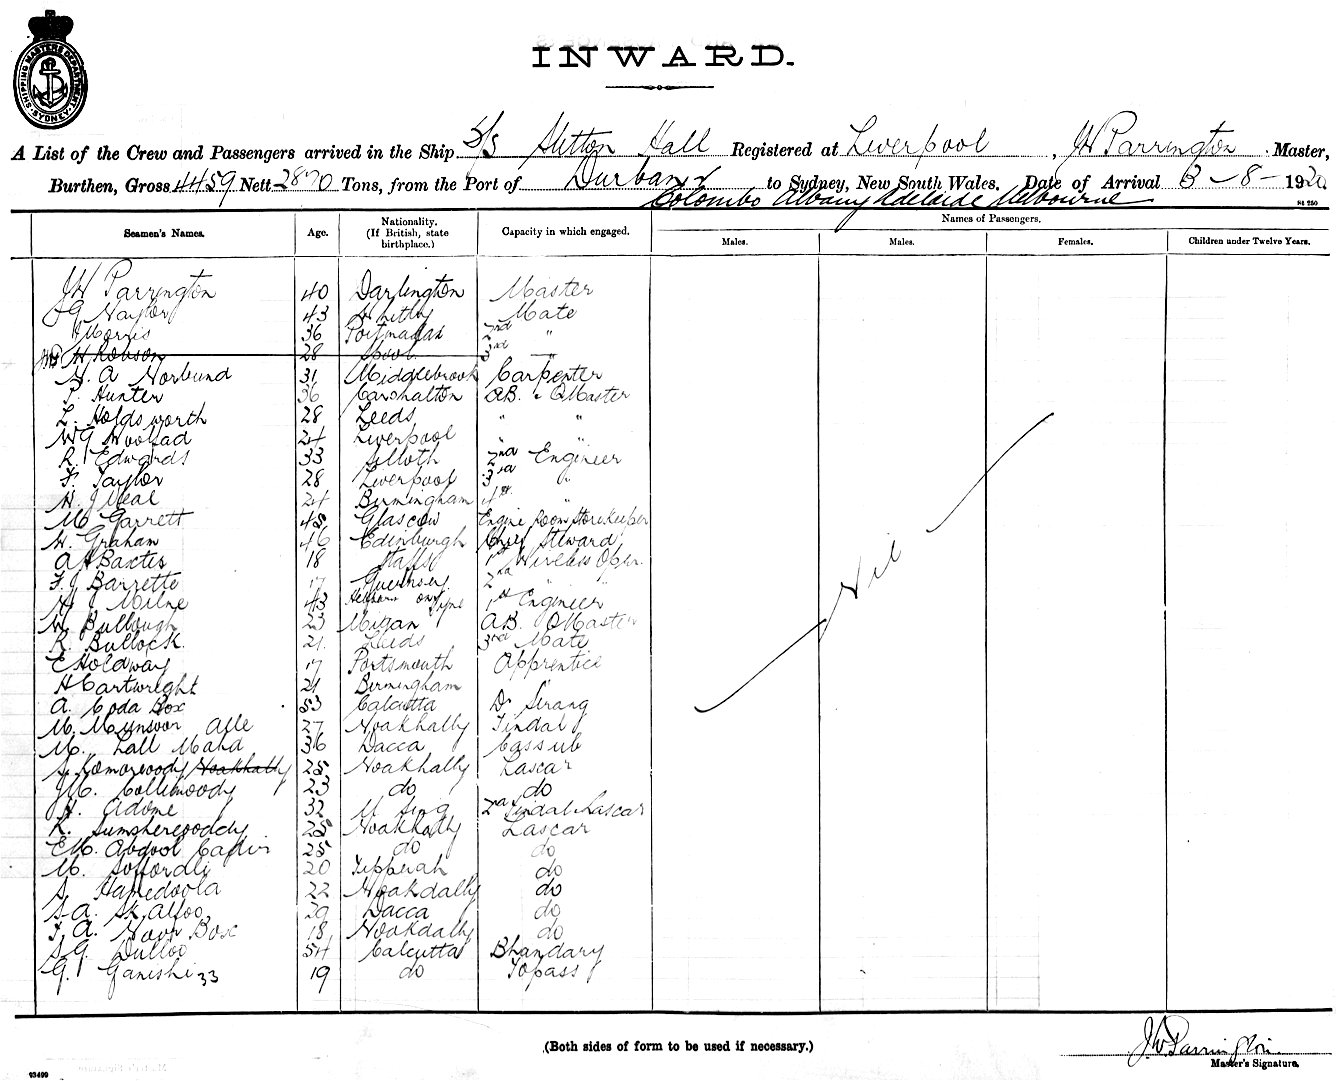 SHIPPING MASTERS DEPARTMENT · SYDNEY ·
INWARD.
A List of the Crew and Passengers arrived in the Ship S/S Sutton Hall Registered at Liverpool, JW Parrington Master,
Burthen, Gross 4459 Nett 2870 Tons, from the Port of Durban to Sydney, New South Wales. Date of Arrival 3-8-1920
Colombo Albany Adelaide Melbourne
Seamen's Names. Age. Nationality. (If British, state birthplace.) Capacity in which engaged. Names of Passengers.
Males. Males. Females. Children under Twelve Years.
JW Parrington 40 Darlington Master
Naylor 43 Whitby Mate
Morris 36 Portmadoc 2nd "
H Robson 28 Lpool 3rd "
H. A Norlund 31 Middlebrook Carpenter
P. Hunter 36 Carshalton AB. & QMaster
L. Holdsworth 28 Leeds " "
24 Liverpool " "
R. Edwards 33 Silloth 2nd Engineer
F. Taylor 28 Liverpool 3rd "
24 Birmingham 4th "
M. Garrett 48 Glascow Engine Room Storekeeper
W. Graham 46 Edinburgh Chief Steward
A H Baxter 18 Staffs 1st Wireless Oper.
F. J Barrette 17 Guernsey 2nd " "
H J Milne 43 Hebburn on Tyne 1st Engineer
W. Bullough 23 Wigan AB. QMaster
R. Bullock. 21 Leeds 3rd Mate
E Holdway 17 Portsmouth Apprentice
H Cartwright 21 Birmingham "
A. Coda Box 53 Calcutta Dk Serang
M. Munsoor Alle 27 Noakhally Tindal
M. Lall Mahd 36 Dacca Cassub
S. Komorooddy Noakhally 25 Noakhally Lascar
M. Collimoody 23 do do
H. Adome 32 2nd Tindal Lascar
K. Sumsherooddy 25 Noakhally Lascar
M. Abdool 25 do do
M. Soffordli 20 Tipperah do
S. Hamedoola 22 Noakdally do
S. A. Sk Alloo 29 Dacca do
F. A. Noor Box 18 Noakdally do
S. G. Dulloo 54 Calcutta Bhandary
G. Ganishi 33 19 do Topass
Nil
(Both sides of form to be used if necessary.)
JW Parrington
Master's Signature.